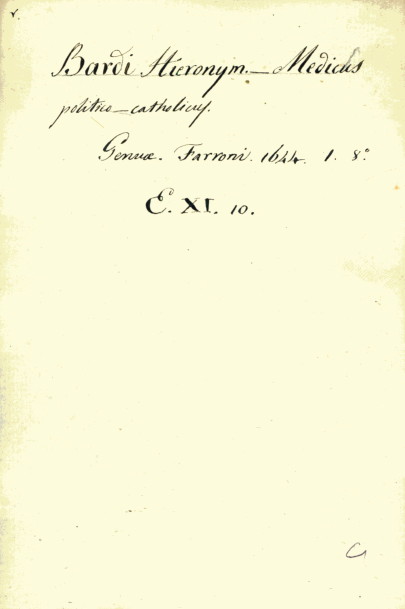 Bardi Hieronym. — Medicus
politico — catholicus.
Genuæ. Farroni. 1644. 1. 8.°
E. XI. 10.